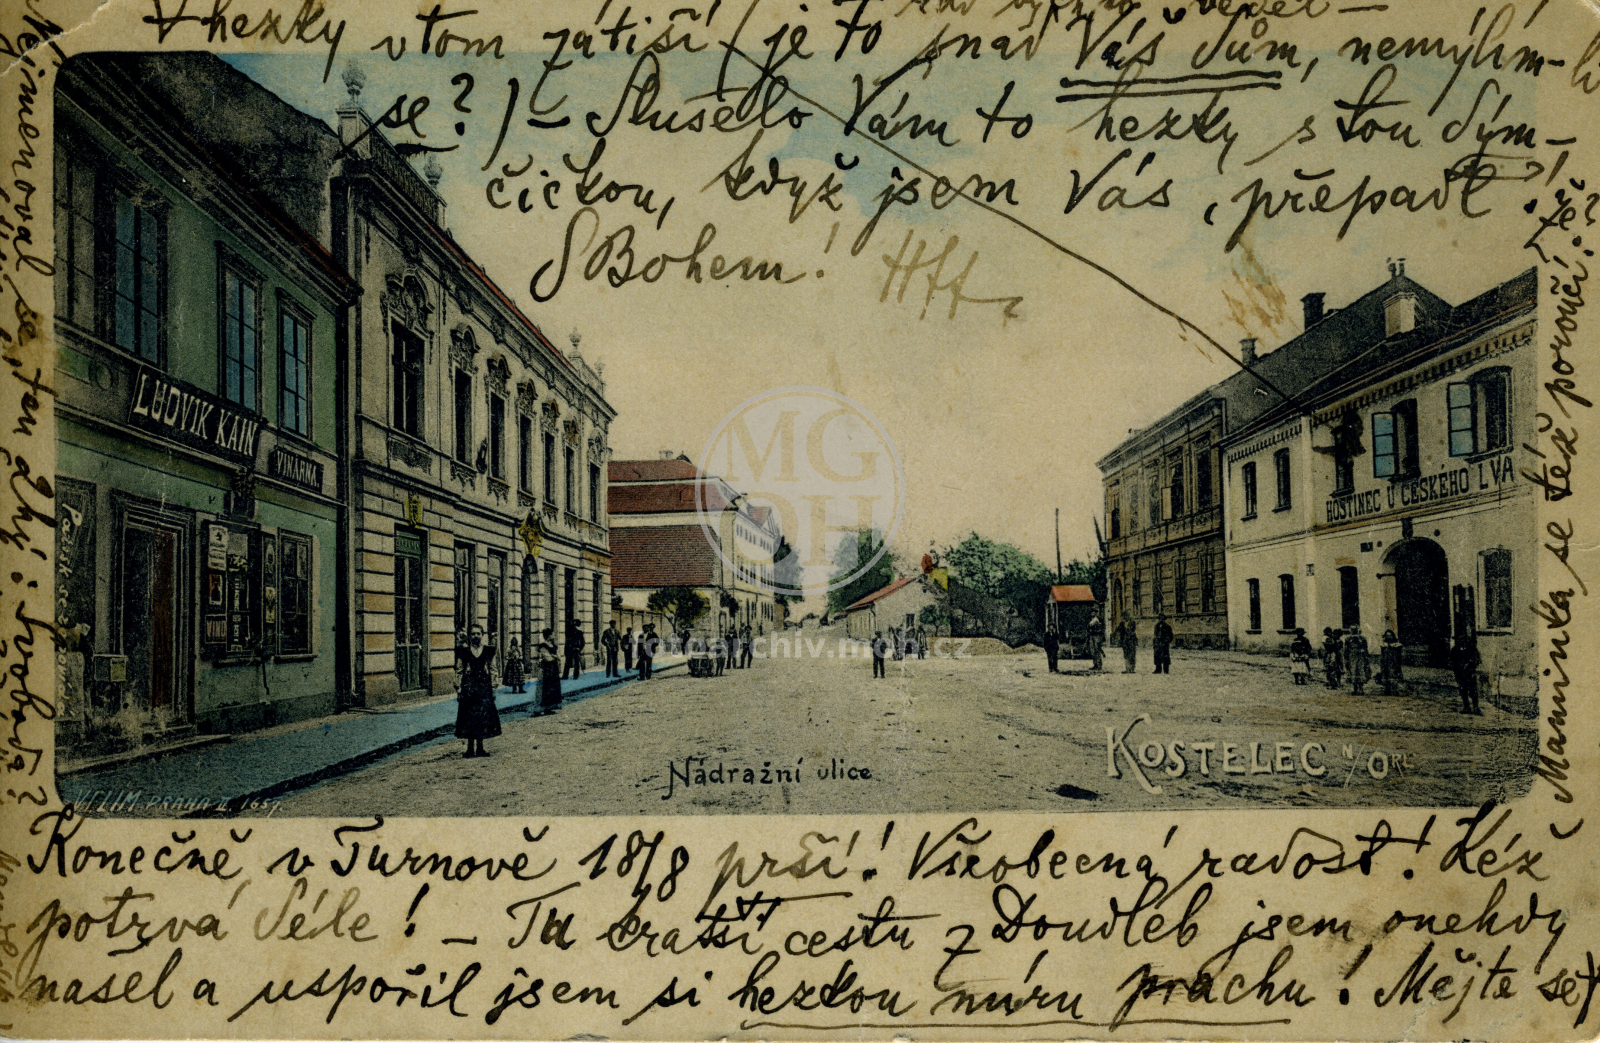 hezky v tom zátiší (je to snad Váš dům, nemýlím-li
se?) – Slušelo Vám to hezky s tou dým-
čičkou, když jsem Vás „přepadl“.
S Bohem!
LUDVÍK KAIN
VINÁRNA.
VINO
HOSTINEC U ČESKÉHO LVA
MG
OH
fotoarchiv.moh.cz
Nádražní ulice
KOSTELEC N/ORL.
VELIM PRAHA II. 1657.
Konečně v Turnově 18/8 prší! Všeobecná radost! Kéž
potrvá déle! – Tu kratší cestu z Doudleb jsem onehdy
našel a uspořil jsem si hezkou můru prachu! Mějte se
Maminka se též poroučí.
Nejmenoval se ten